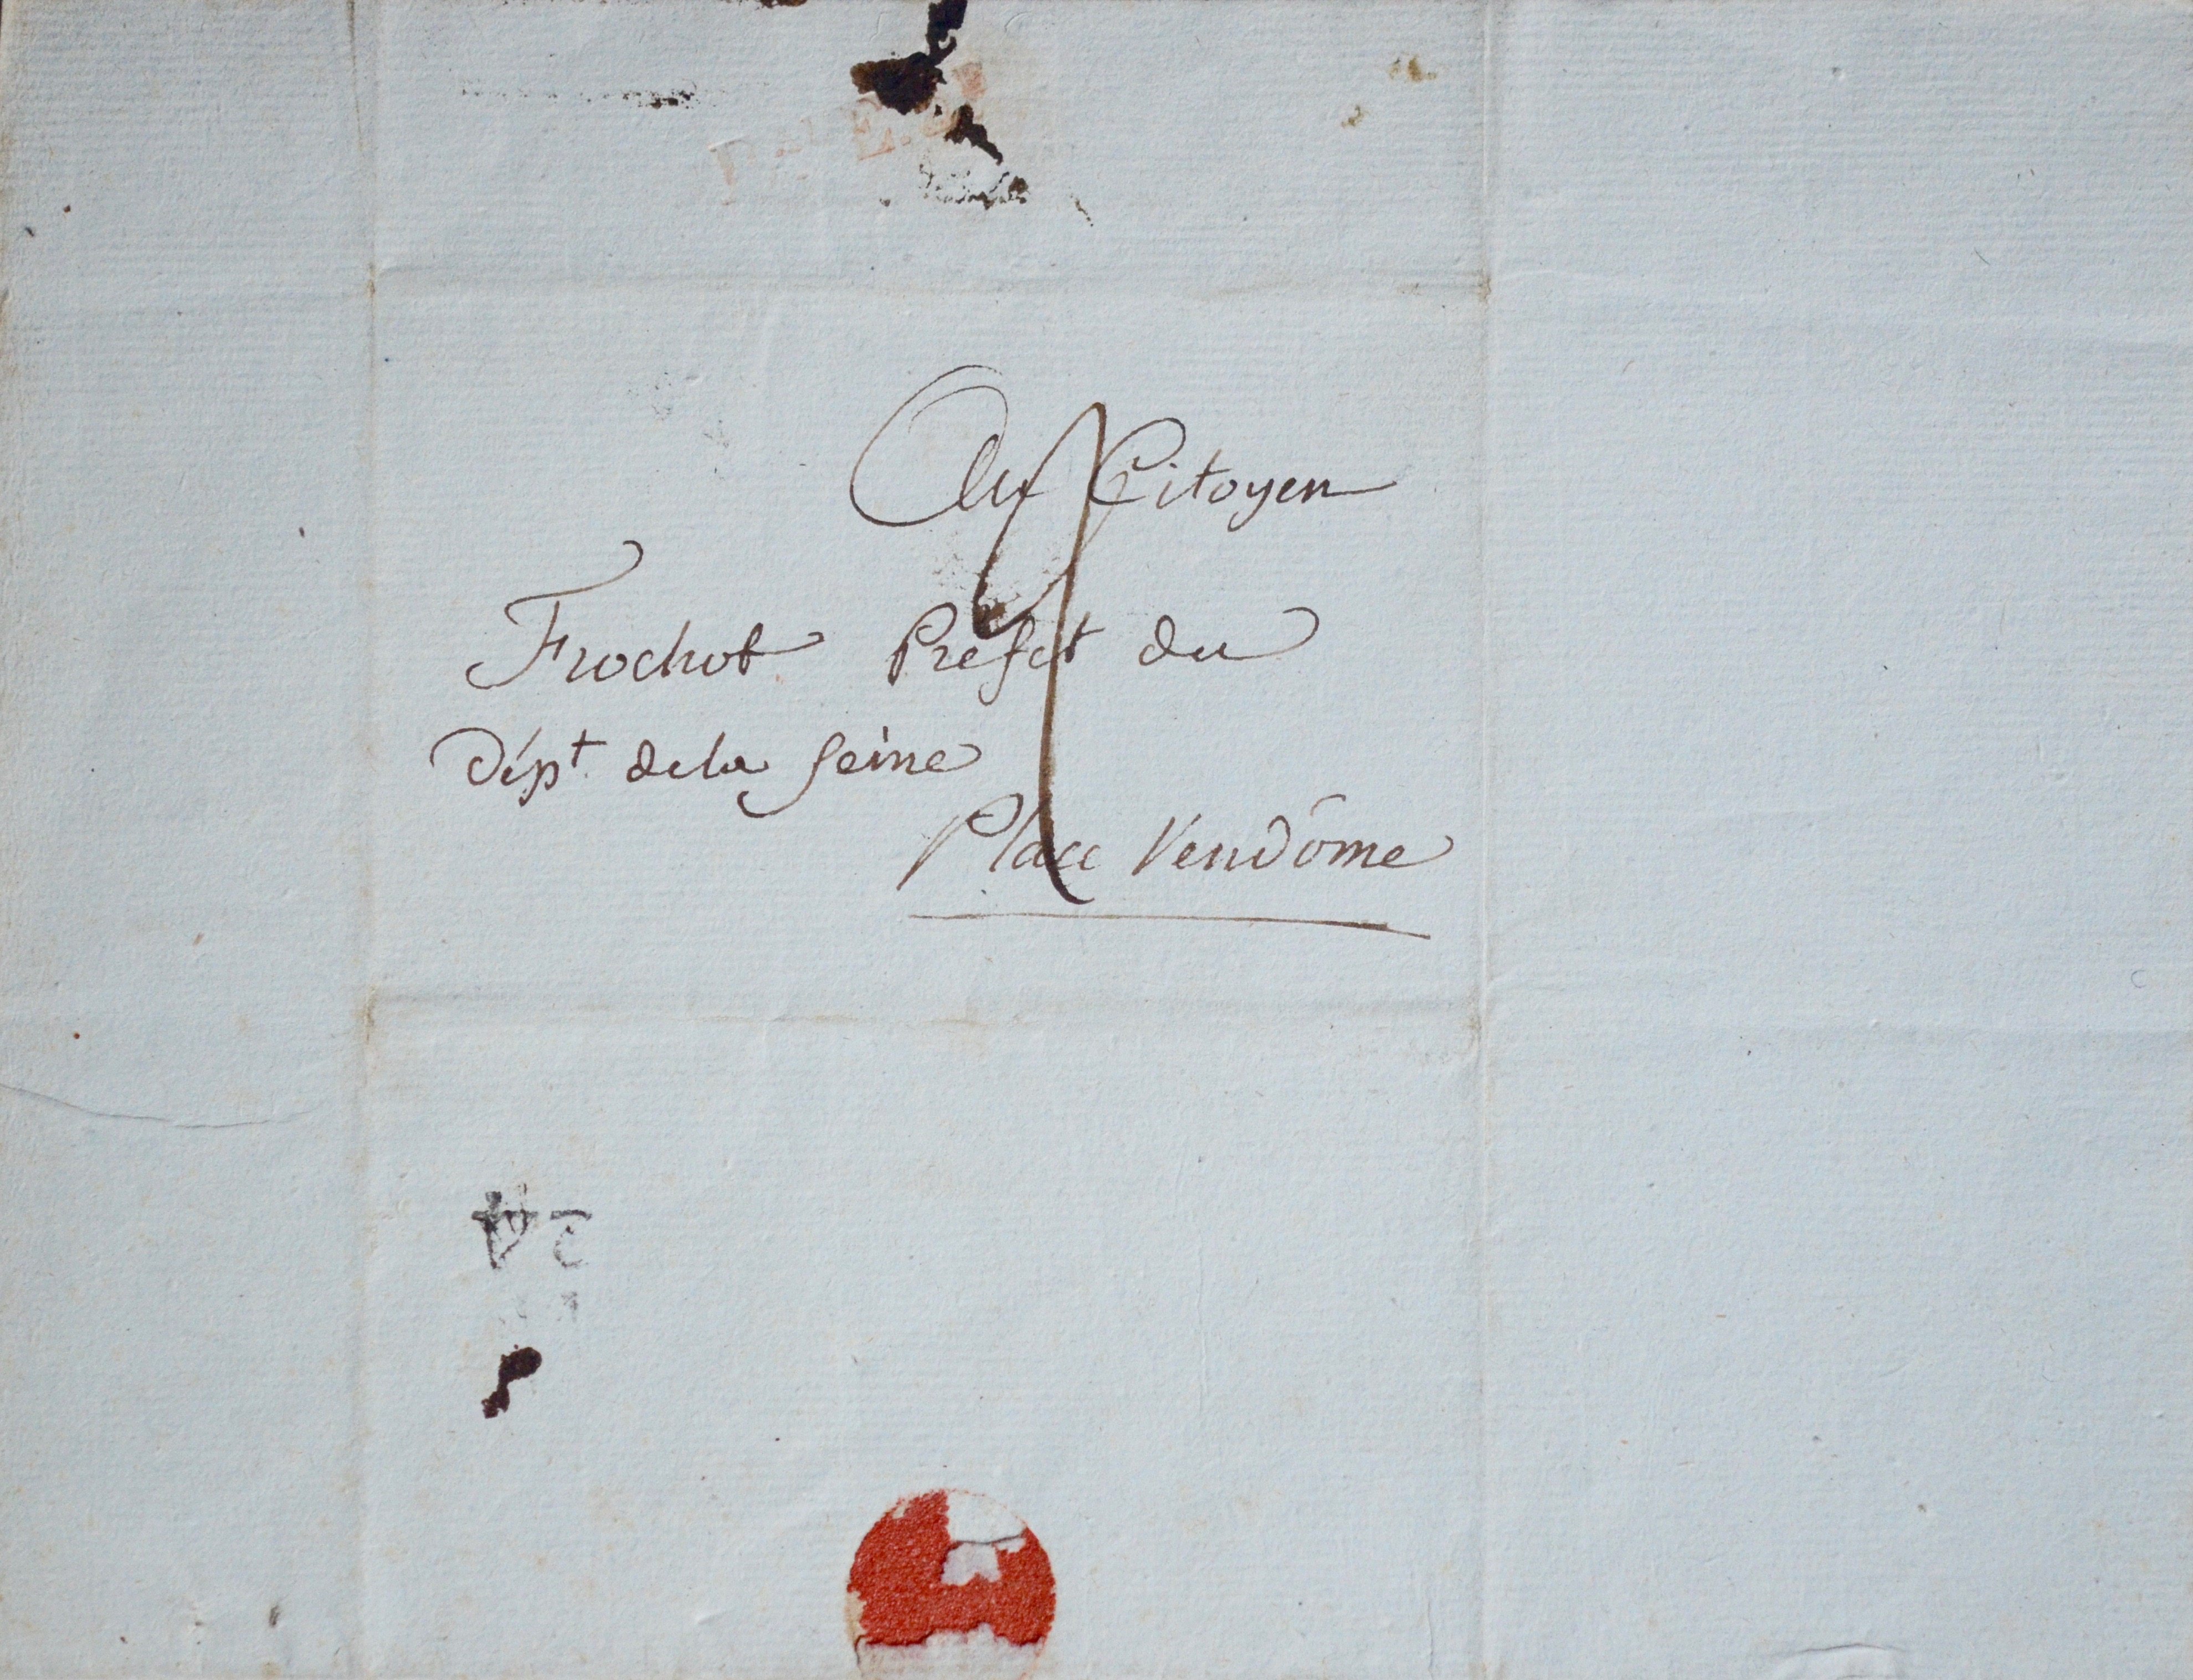 Au Citoyen
Frochot Prefet du
Dépt de la Seine
Place Vendôme